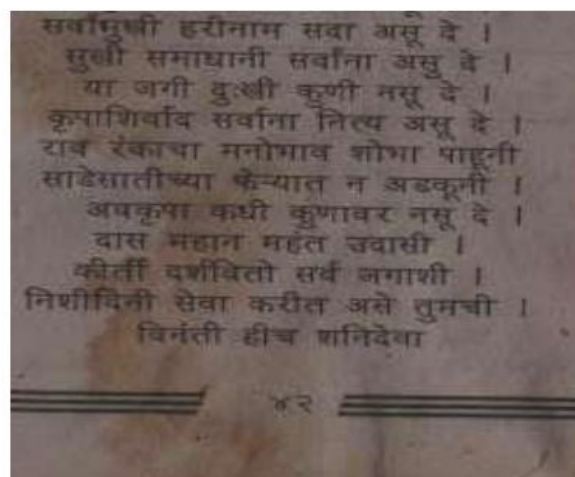 सर्वांमुखी हरीनाम सदा असू दे ।
सुखी समाधानी सर्वांना असु दे ।
या जगी दुःखी कुणी नसू दे ।
कृपाशिर्वाद सर्वांना नित्य असू दे ।
राव रंकाचा मनोभाव शोभा पाहूनी
साडेसातीच्या फेऱ्यात न अडकूनी ।
अवकृपा कधी कुणावर नसू दे ।
दास महान महंत उदासी ।
कीर्ती दर्शवितो सर्व जगाशी ।
निशीदिनी सेवा करीत असे तुमची ।
विनंती हीच शनिदेवा
४२